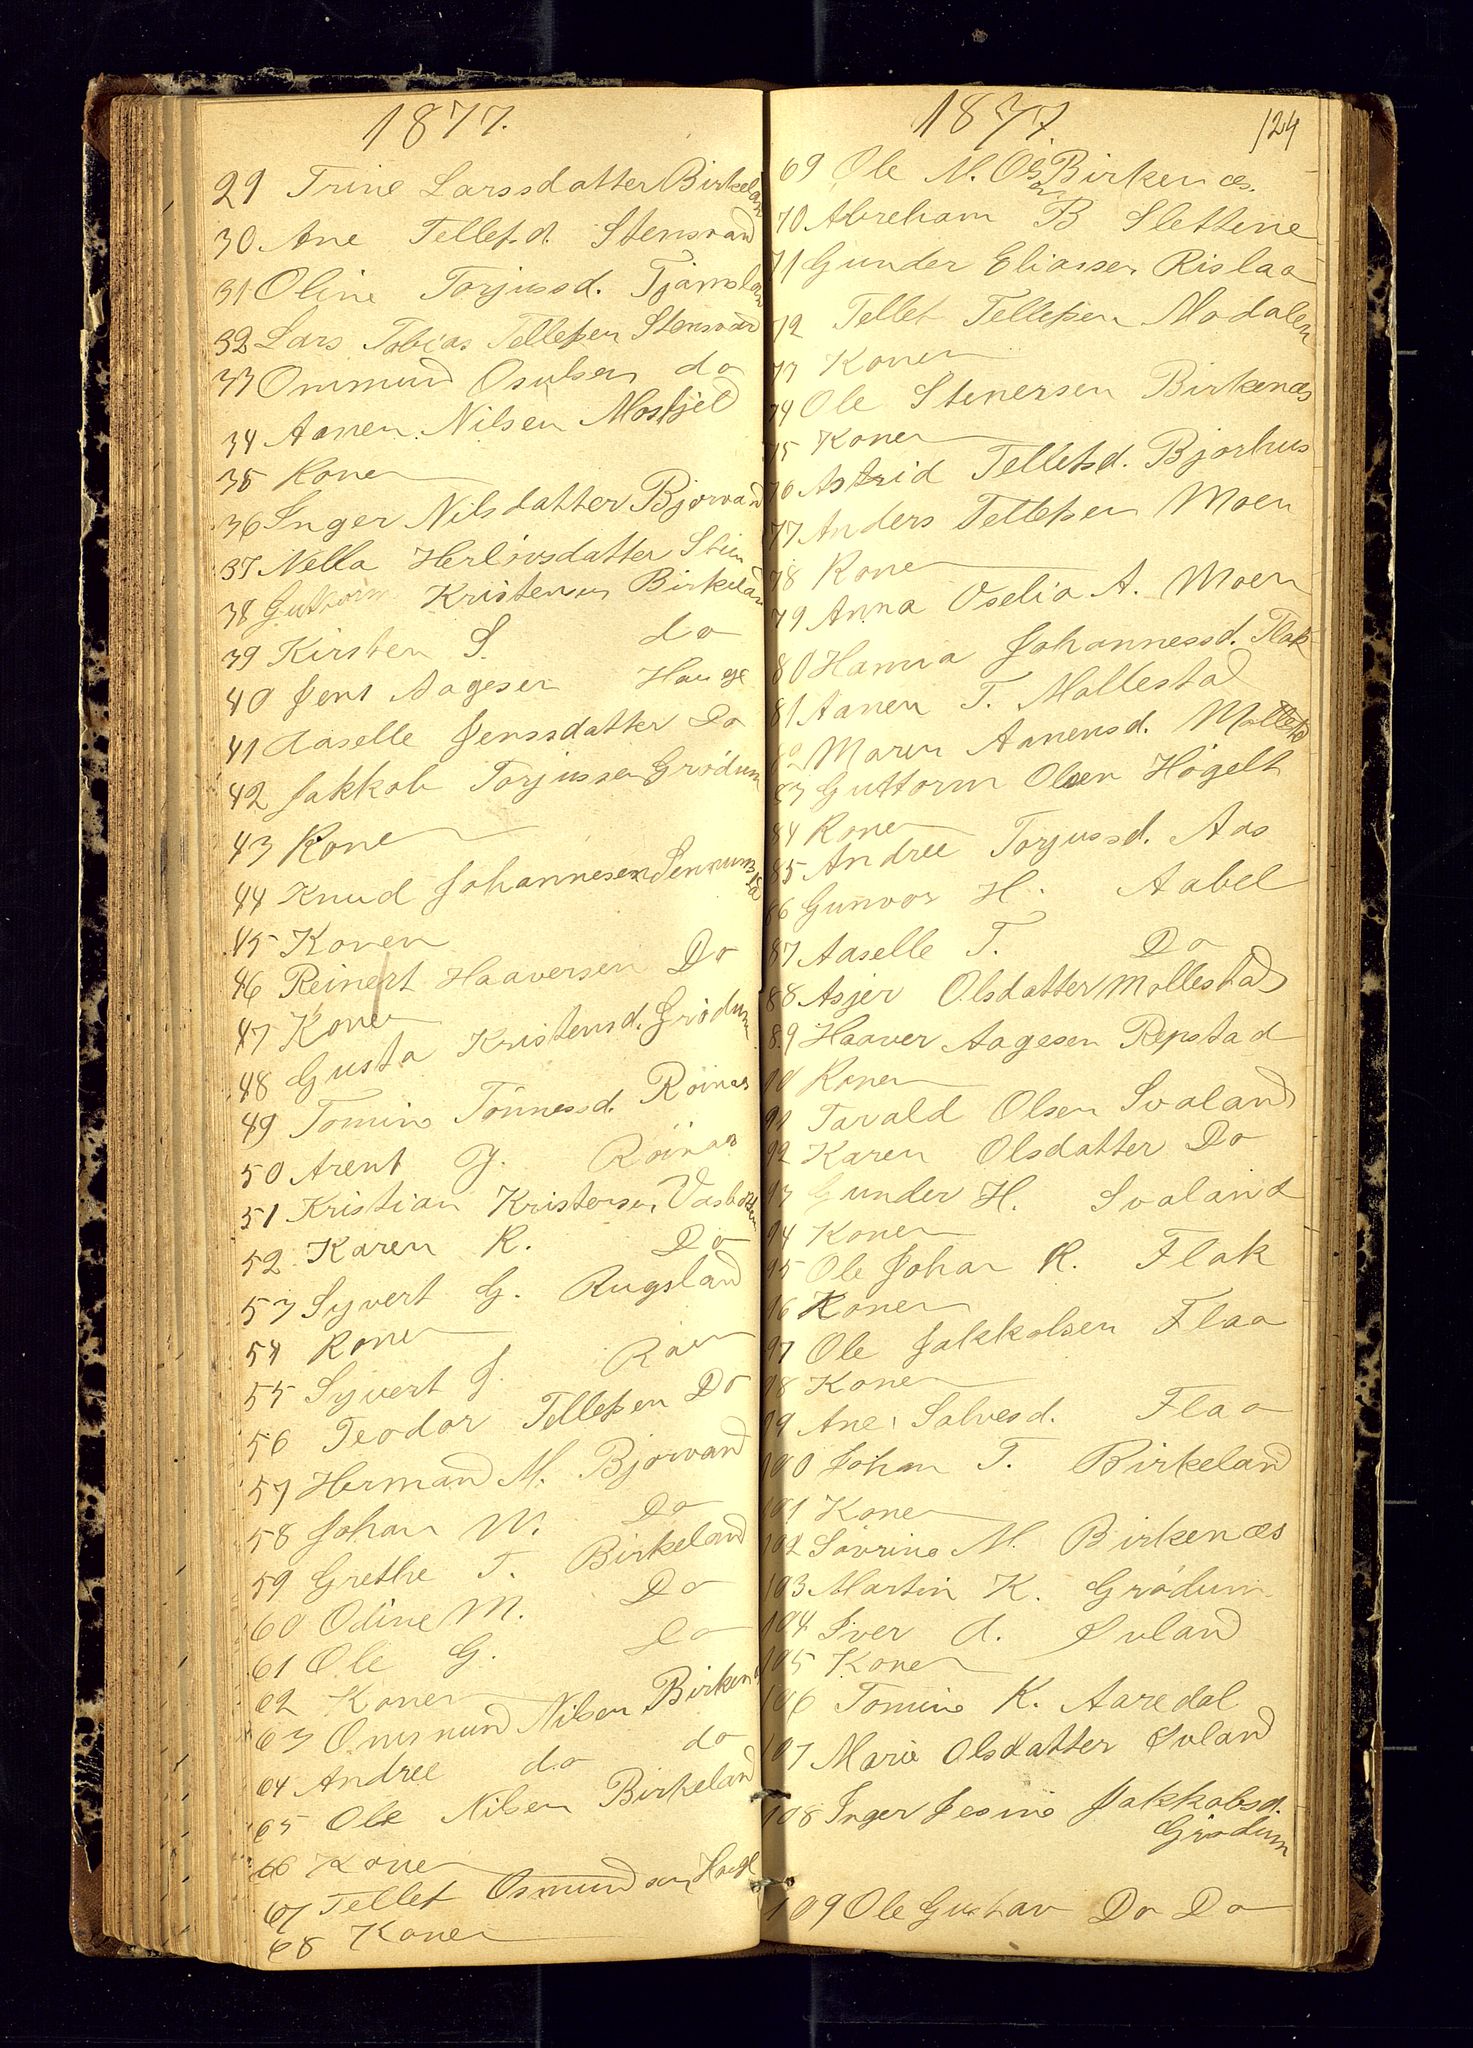 1877.
29 Trine Larssdatter Birkeland
30 Ane Tellefsd. Stensvand
31 Oline Torjussd. Tjomsland
32 Lars Tobias Tellefsen Stensvand
33 Ommund Osulsen do
34 Aanen Nilsen Mosfjeld
35 Konen
36 Inger Nilsdatter Bjorvand
37 Nella Herlovsdatter Stien
38 Guttorm Kristensen Birkeland
39 Kirsten S. do
40 Jens Aagesen Hauge
41 Aaselle Jenssdatter Do
42 Jakkob Torjussen Grødum
43 Kone
44 Knud Johannesen Senumstad
45 Konen
46 Reinert Haaversen Do
47 Konen
48 Gusta Kristensd. Grødum
49 Tomine Tönnessd. Röinas
50 Arent J. Röinas
51 Kristian Kristensen
52 Karen K. Do
53 Syvert G. Rugsland
54 Konen
55 Syvert J.
56 Teodor Tellefsen Do
57 Herman M. Bjorvand
58 Johan M. Do
59 Grethe T. Birkeland
60 Odine M. Do
61 Ole G. Do
62 Konen
63 Ommund Nilsen Birkenes
64 Andree do do
65 Ole Nilsen Birkeland
66 Konen
67 Tellef Osmundsen
68 Konen
1877. 124
69 Ole N. Birkenæs.
70 Abreham B Slettene
71 Gunder Eliassen Rislaa
72 Tellef Tellefsen Modalen
73 Konen
74 Ole Stenersen Birkenæs
75 Konen
76 Astrid Tellefsd. Bjorhus
77 Anders Tellefsen Moen
78 Konen
79 Anna Oselia A. Moen
80 Hanna Johannessd. Flak
81 Aanen T. Mollestad
82 Maren Aanensd. Mollestad
83 Guttorm Olsen Högelt
84 Konen
85 Andree Torjussd. Aas
86 Gunvor H. Aabel
87 Aaselle T. Do
88 Asjer Olsdatter Mollestad
89 Haaver Aagesen Repstad
90 Konen
91 Tarald Olsen Svaland
92 Karen Olsdatter Do
93 Gunder H. Svaland
94 Konen
95 Ole Johan R. Flak
96 Konen
97 Ole Jakkobsen Flaa
98 Konen
99 Ane Salvesd. Flaa
100 Johan T. Birkeland
101 Konen
102 Sövrine N. Birkenæs
103 Martin K. Grødum
104 Iver A. Ivland
105 Konen
106 Tomine K. Aaredal
107 Marie Olsdatter Ivland
108 Inger Jesine Jakkobsd.
Grødum
109 Ole Gustav Do Do